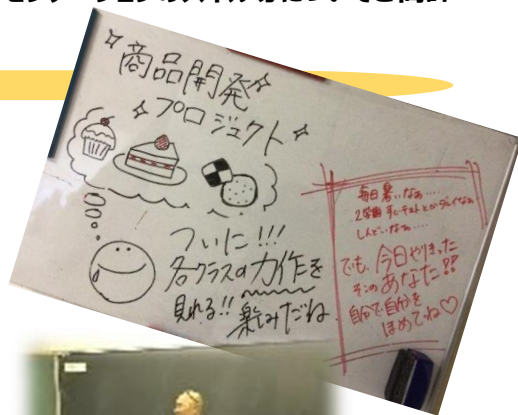 商品開発
プロジェクト
ついに!!!
各クラスの力作を
見れる!! 楽しみだね
毎日暑いなぁ……
しんどいなぁ……
でも、今日やりきった
そのあなた!!
自分で自分を
ほめてね♡